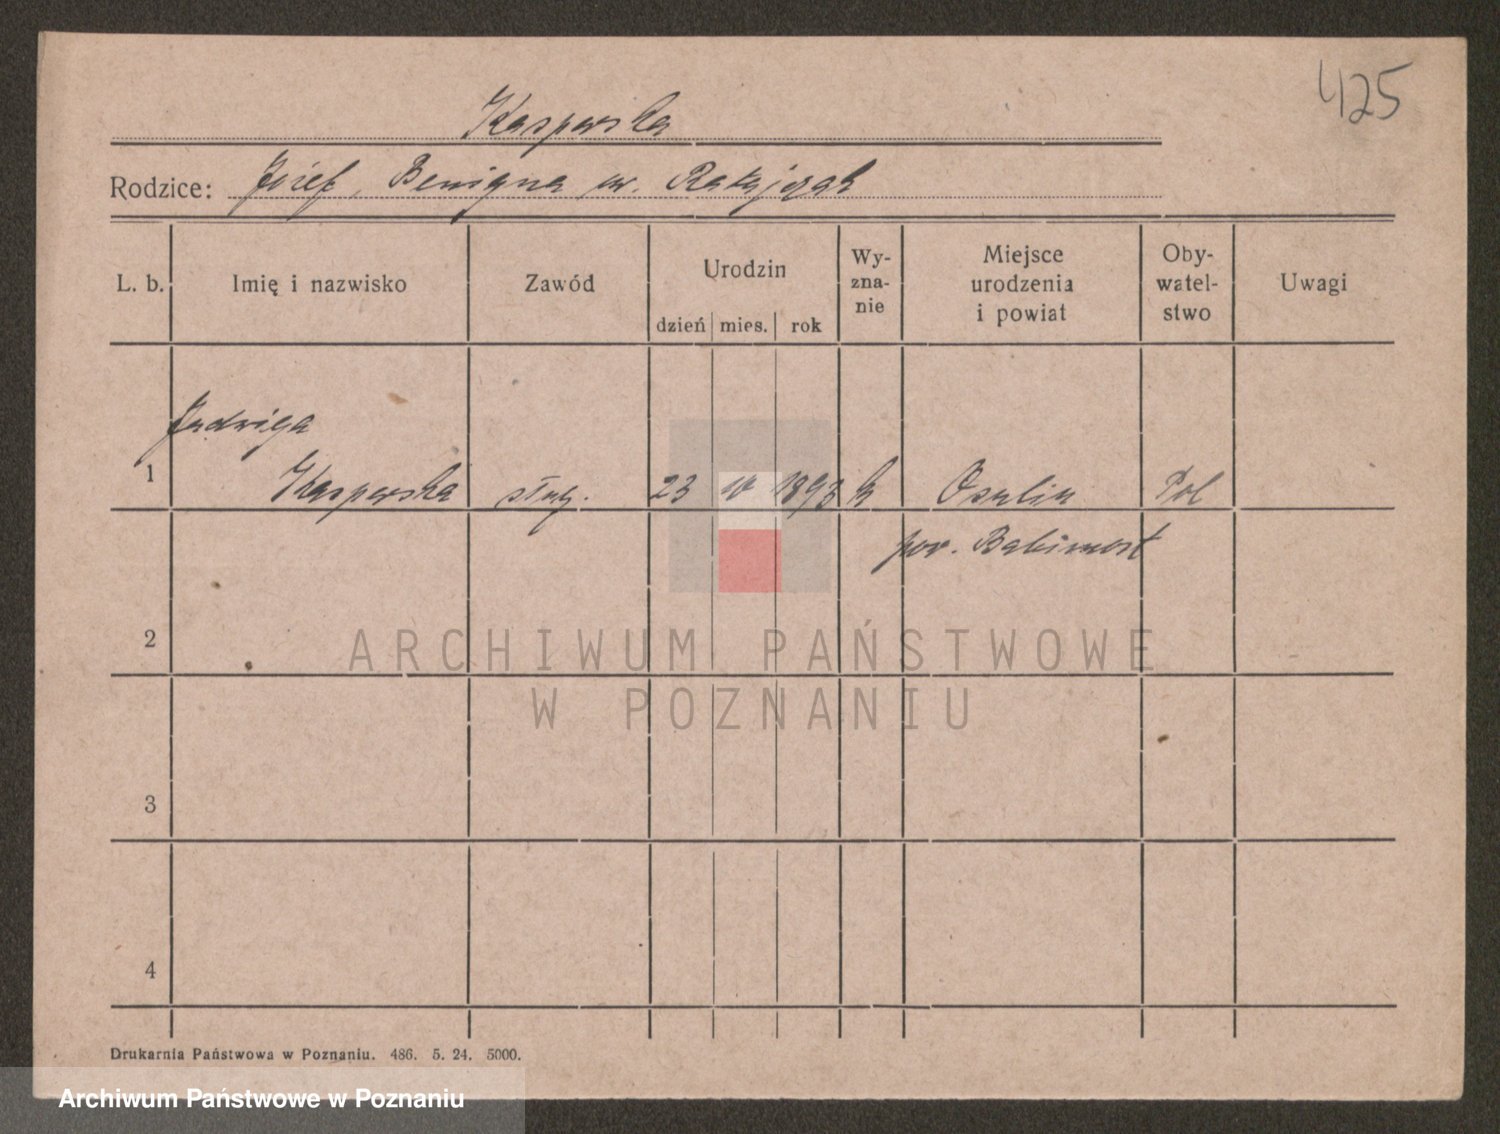 425
Kasperska
Rodzice: Józef, Benigna ur. Ratajczak
L. b.
Imię i nazwisko
Zawód
Urodzin
dzień mies. rok
Wy-
zna-
nie
Miejsce
urodzenia
i powiat
Oby-
watel-
stwo
Uwagi
Jadwiga
1 Kasperska służ. 23 IV 1893 k Pol
pow. Babimost
2
3
4
ARCHIWUM PAŃSTWOWE
W POZNANIU
Drukarnia Państwowa w Poznaniu. 486. 5. 24. 5000.
Archiwum Państwowe w Poznaniu